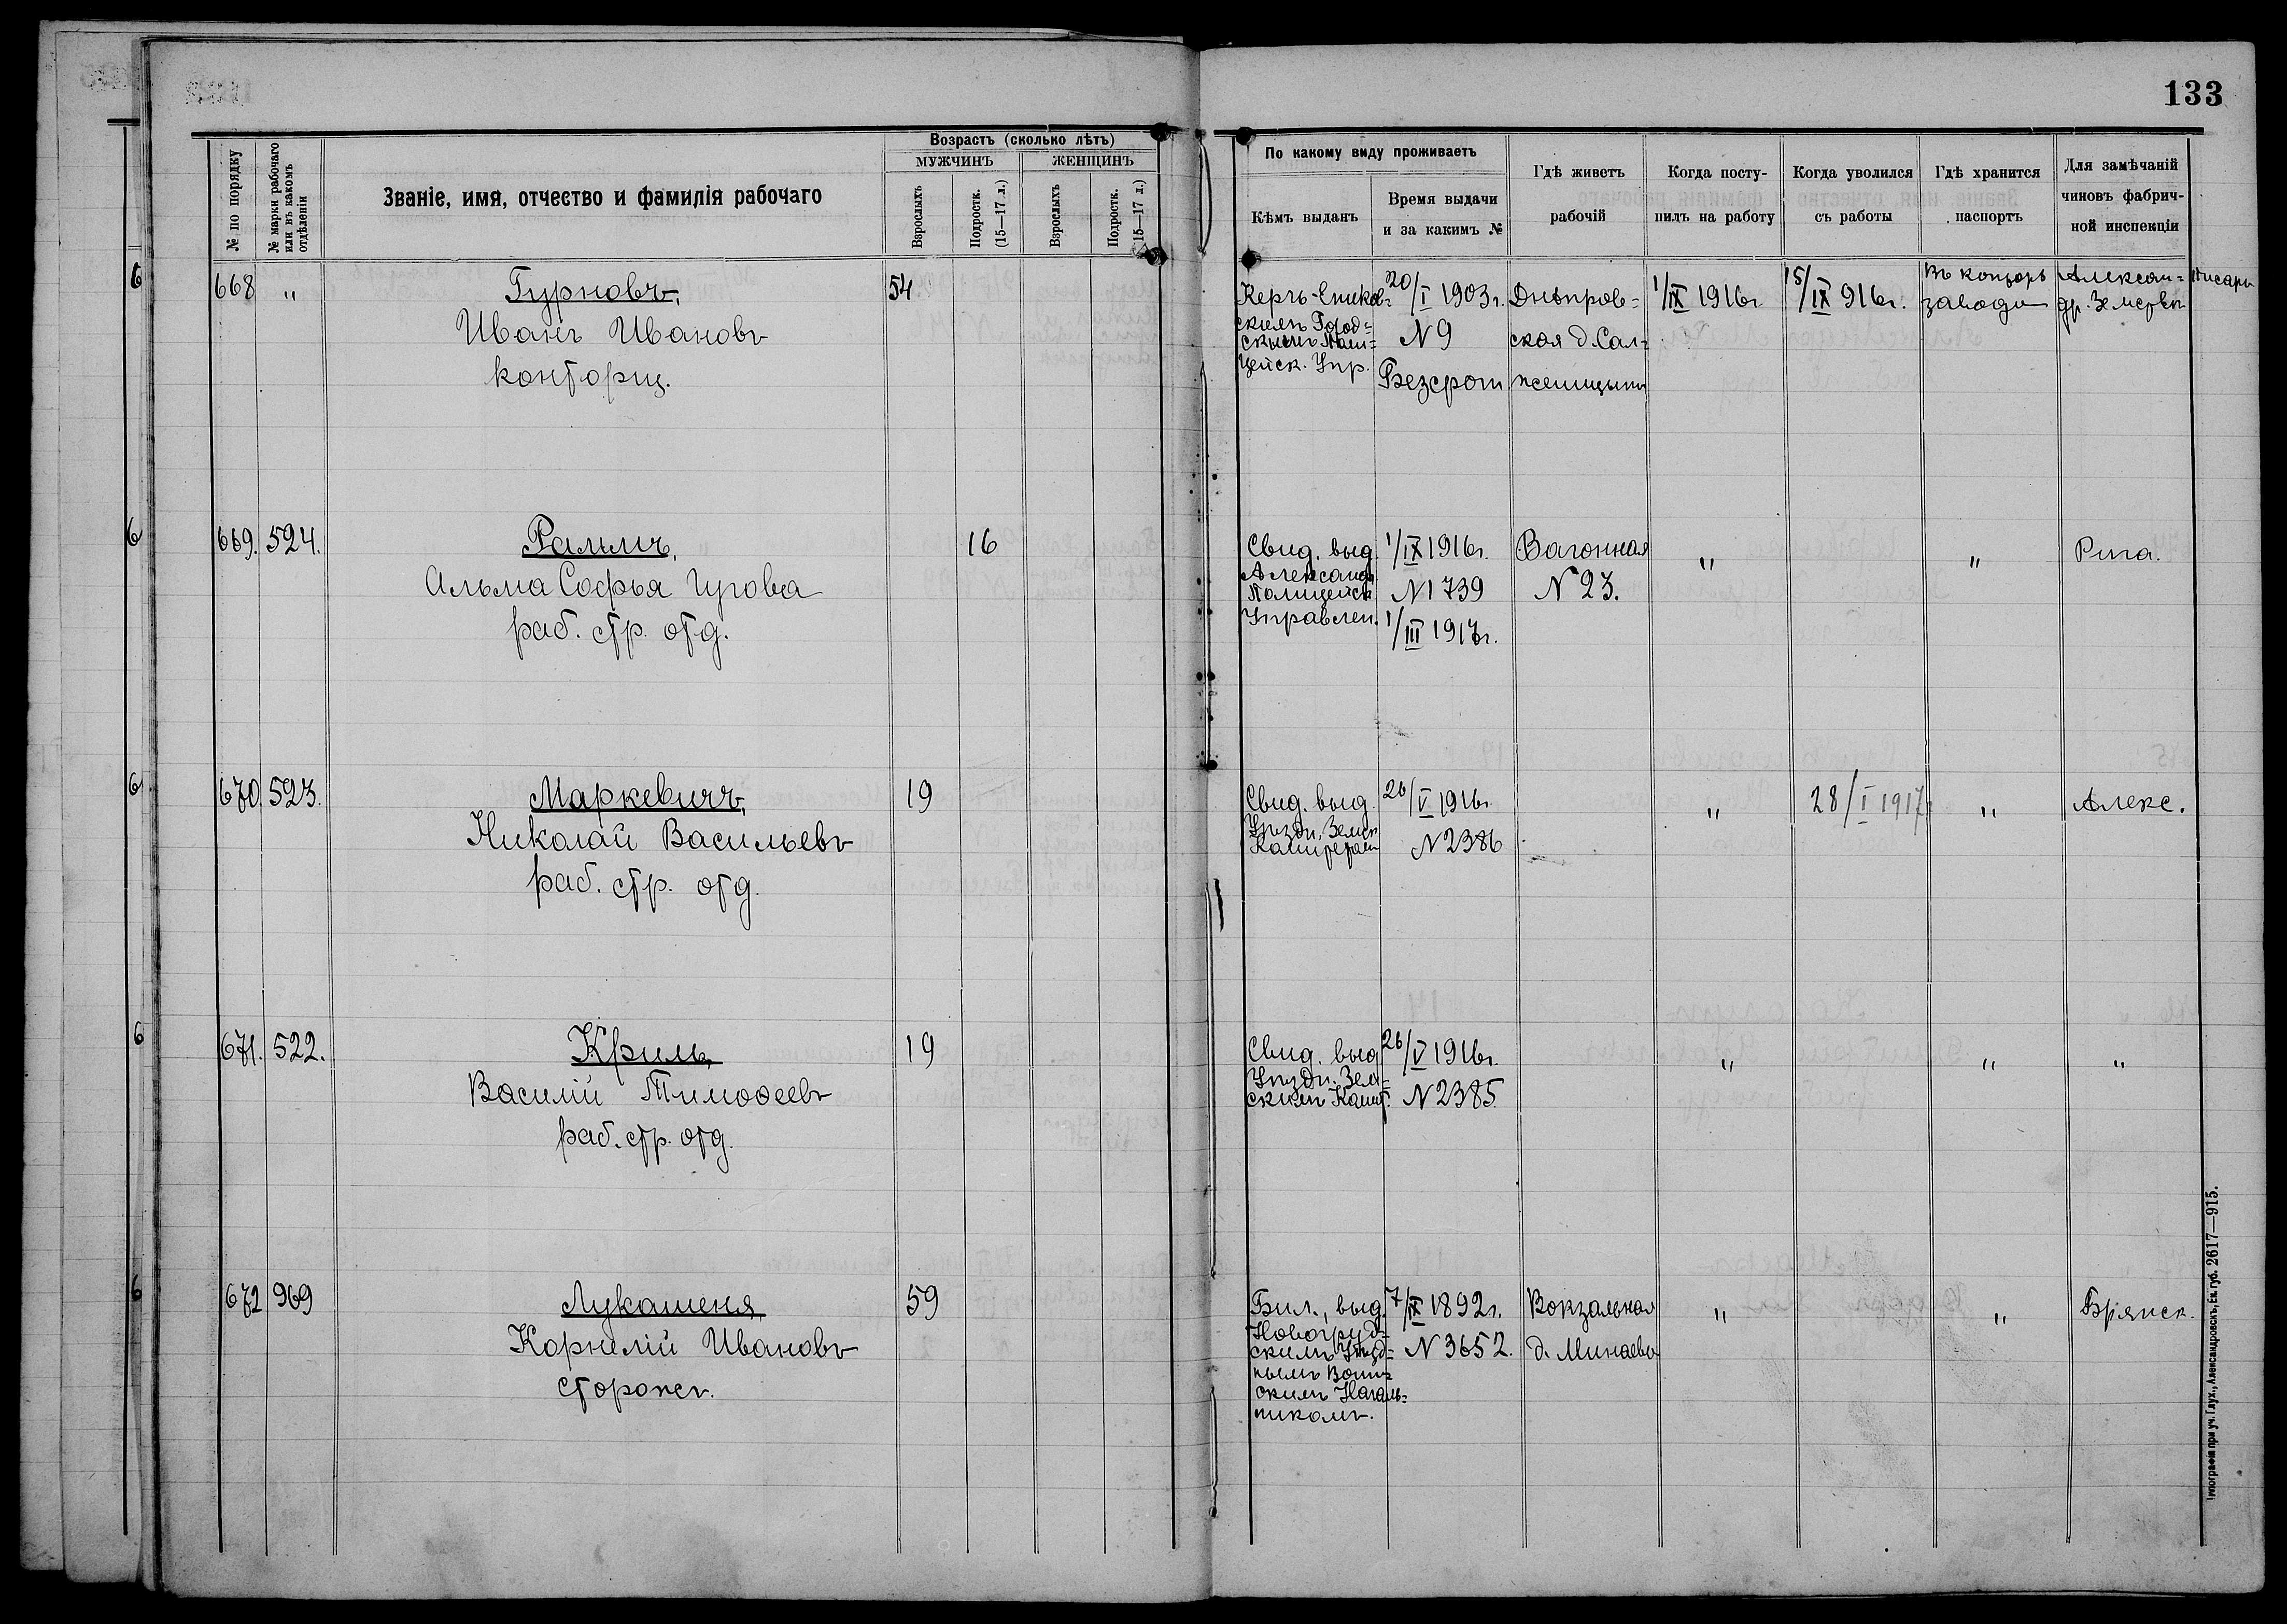 133
№ по порядку
№ марки рабочаго или въ какомъ отдѣленіи
Званіе, имя, отчество и фамилія рабочаго
Возрастъ (сколько лѣтъ)
МУЖЧИНЪ ЖЕНЩИНЪ
Взрослыхъ
Подростк. (15—17 л.)
Взрослыхъ
Подростк. (15—17 л.)
По какому виду проживаетъ
Кѣмъ выданъ
Время выдачи
и за какимъ №
Гдѣ живетъ
рабочій
Когда посту-
пилъ на работу
Когда уволился
съ работы
Гдѣ хранится
паспортъ
Для замѣчаній
чиновъ фабрич-
ной инспекціи
668 " Гурновъ, 54
Иванъ Ивановъ
конторщ.
Керчъ-Еникол=
скимъ Город=
скимъ Поли=
цейск. Упр.
20/I 1903г.
N 9
Безсроч
Днѣпров=
ская д. Сал=
1/IX 1916г.
15/IX 916г.
Въ конторѣ
завода
Алексан=
др. Земства
писари
669. 524. Ральмъ, 16
Альма Софья Цурова
раб. стр. отд.
Свид. выд.
Александр.
Полицейск
Управлен.
1/IX 1916г.
N1739
1/III 1917г.
Вагонная
N 23.
" " Рига.
670 523. Маркевичъ, 19
Николай Васильевъ
раб. стр. отд.
Свид. выд.
Уѣздн. Земск
26/V 1916г.
N2386
" 28/I 1917г. " Алекс.
671. 522. Криль, 19
Василій Тимоѳеевъ
раб. стр. отд.
Свид. выд
Уѣздн. Зем=
скимъ Ками.
26/V 1916г.
N2385.
" " "
672 969 Лукашеня 59
Корнелій Ивановъ
сторожъ.
Бил., выд.
Новогруд=
скимъ Уѣзд=
нымъ Воин=
скимъ Началь=
никомъ.
7/IX 1892г.
N 3652.
Вокзальная
д. Минаева
" " Брянск.
6
6
6
6
6
Типографія при уч. Глух., Александровскъ, Ек. губ. 2617—915.